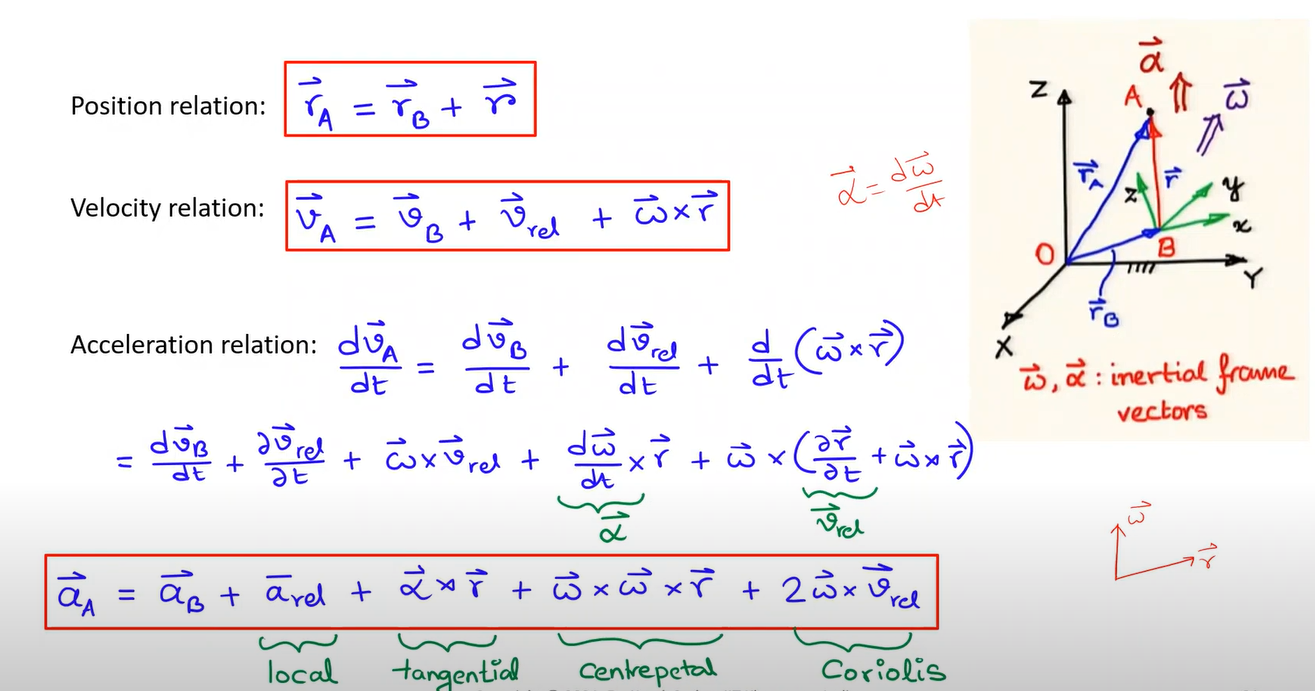 Position relation: r⃗_A = r⃗_B + r⃗
Velocity relation: v⃗_A = v⃗_B + v⃗_rel + ω⃗ × r⃗
α⃗ = dω⃗/dt
Acceleration relation: dv⃗_A/dt = dv⃗_B/dt + dv⃗_rel/dt + d/dt (ω⃗ × r⃗)
= dv⃗_B/dt + ∂v⃗_rel/∂t + ω⃗ × v⃗_rel + dω⃗/dt × r⃗ + ω⃗ × (∂r⃗/∂t + ω⃗ × r⃗)
α⃗ v⃗_rel
a⃗_A = a⃗_B + a̅_rel + α⃗ × r⃗ + ω⃗ × ω⃗ × r⃗ + 2ω⃗ × v⃗_rel
local tangential Centrepetal Coriolis
α⃗
Z A ω⃗
r⃗_A z r⃗ y
x
O B
Y
r⃗_B
X
ω⃗, α⃗ : inertial frame
vectors
ω⃗
r⃗